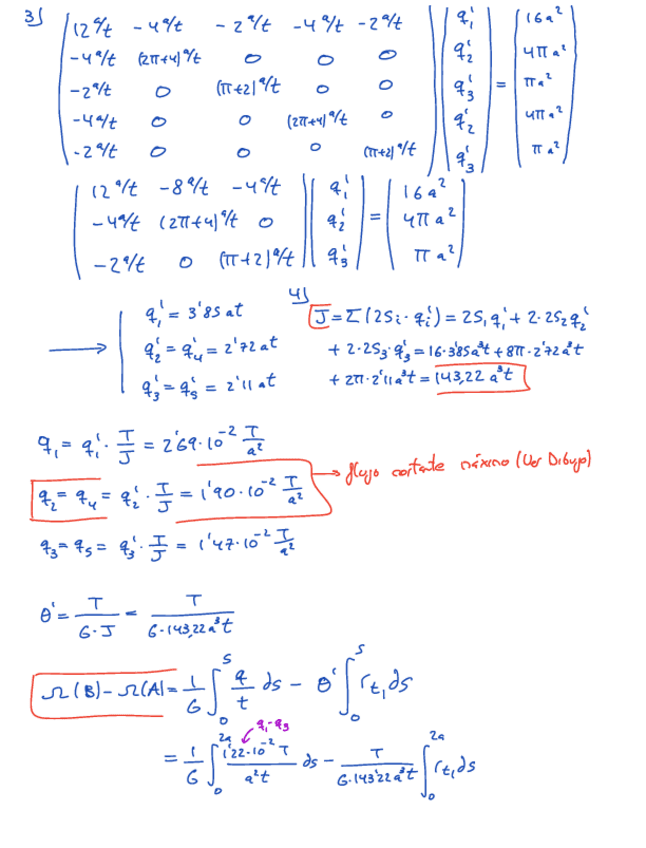 3)
| 12 a/t  -4 a/t  -2 a/t  -4 a/t  -2 a/t | | q₁' | | 16a² |
| -4 a/t  (2π+4) a/t  0  0  0 | | q₂' | | 4π a² |
| -2 a/t  0  (π+2) a/t  0  0 | | q₃' | = | π a² |
| -4 a/t  0  0  (2π+4) a/t  0 | | q₂' | | 4π a² |
| -2 a/t  0  0  0  (π+2) a/t | | q₃' | | π a² |
| 12 a/t  -8 a/t  -4 a/t | | q₁' | | 16a² |
| -4 a/t  (2π+4) a/t  0 | | q₂' | = | 4π a² |
| -2 a/t  0  (π+2) a/t | | q₃' | | π a² |
→ q₁' = 3'85 at
q₂' = q₄' = 2'72 at
q₃' = q₅' = 2'11 at
4)
J = Σ(2Sᵢ·qᵢ') = 2S₁q₁' + 2·2S₂q₂'
+ 2·2S₃·q₃' = 16·3'85a³t + 8π·2'72a³t
+ 2π·2'11a³t = 143,22 a³t
q₁ = q₁' · T/J = 2'69·10⁻² T/a²
q₂ = q₄ = q₂' · T/J = 1'90·10⁻² T/a² → flujo cortante máximo (Ver Dibujo)
q₃ = q₅ = q₃' · T/J = 1'47·10⁻² T/a²
θ' = T/(G·J) = T/(G·143,22 a³t)
Ω(B) - Ω(A) = 1/G ∫₀ˢ q/t ds - θ' ∫₀ˢ r_t₁ ds
q₁-q₃
= 1/G ∫₀²ᵃ 1'22·10⁻² T/(a²t) ds - T/(G·143'22 a³t) ∫₀²ᵃ r_t₁ ds